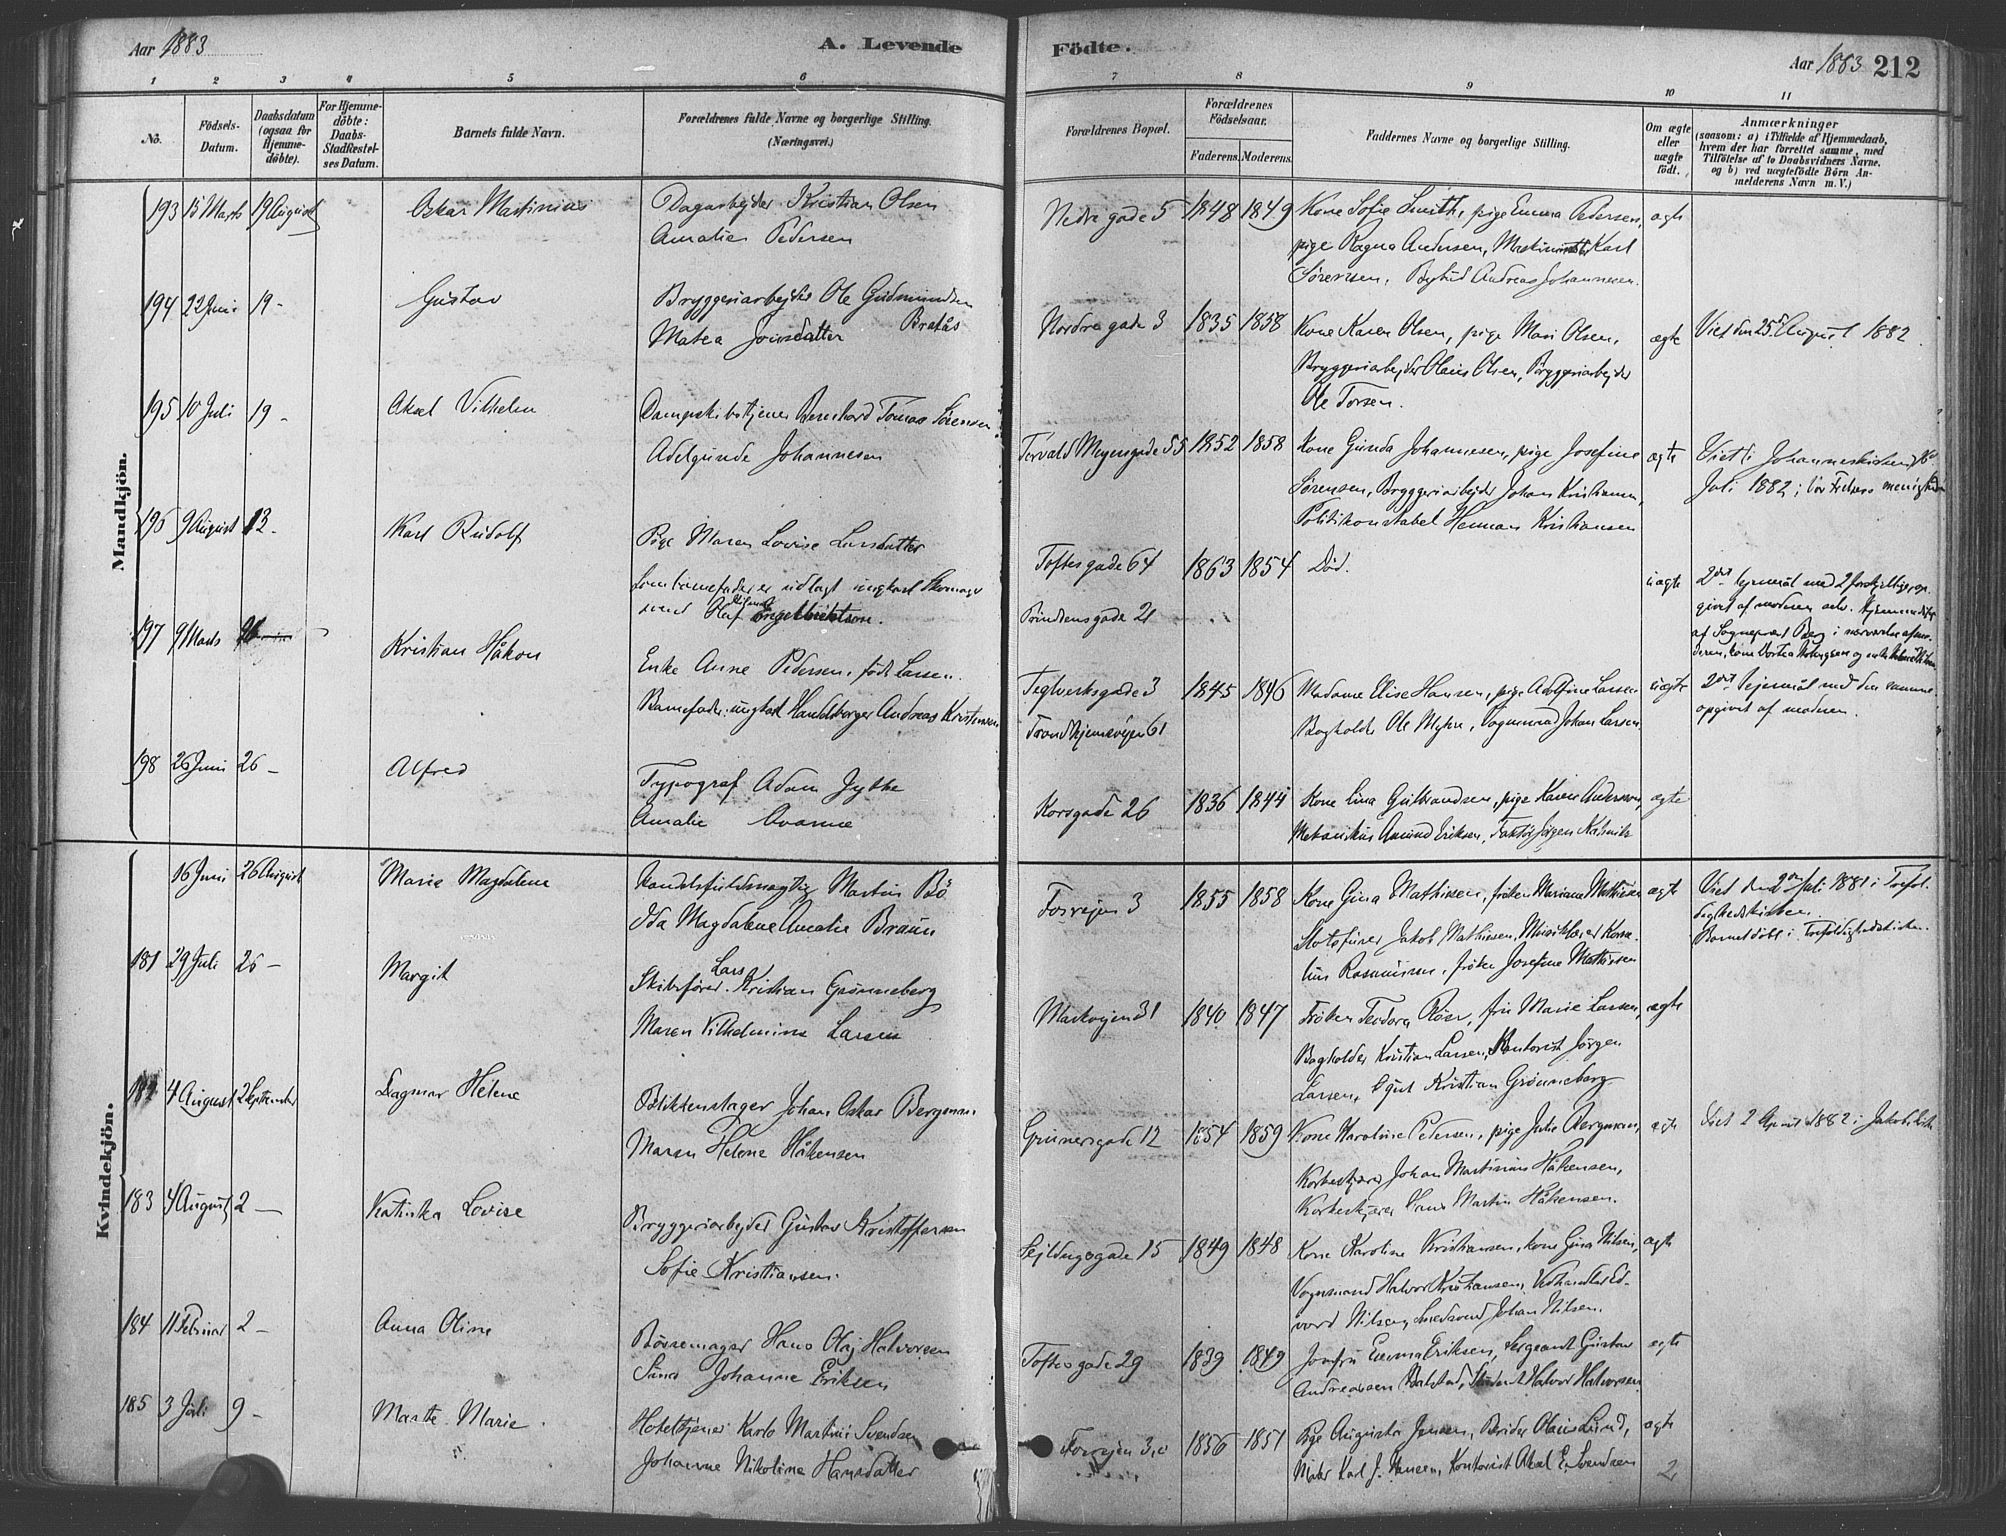 Aar 1883
A. Levende Födte.
Aar 1883 212
1 2 3 4 5 6 7 8 9 10 11
No.
Födsels-Datum.
Daabsdatum (ogsaa for Hjemmedöbte).
For Hjemmedöbte: Daabs-Stadfestelses Datum.
Barnets fulde Navn.
Forældrenes fulde Navne og borgerlige Stilling. (Næringsvei.)
Forældrenes Bopæl.
Forældrenes Födselsaar.
Faderens. Moderens.
Faddernes Navne og borgerlige Stilling.
Om ægte eller uægte födt.
Anmærkninger
(saasom: a) i Tilfælde af Hjemmedaab, hvem der har forrettet samme, med Tilföielse af to Daabsvidners Navne, og b) ved uægtefödte Börn Anmelderens Navn m. V.)
Mandkjön.
193 15 Marts 19 August Oskar Martinius
Dagarbejder Kristian Olsen
Amalie Pedersen
Nedregade 5 1848 1849
Kone Sofie Smith, pige Emma Pedersen, ægte
pige Ragna Andersen, Maskinist Karl
Sørensen, Bybud Andreas Johannesen.
194 22 Juni 19 - Gustav
Bryggeriarbejder Ole Gudmundsen
Bratås
Matea Jonsdatter
Nordregade 3 1835 1858
Kone Karen Olsen, pige Mari Olsen, ægte
Bryggeriarbejder Olaus Olsen, Bryggeriarbejder
Ole Torsen.
Viet den 25 August 1882.
195 10 Juli 19 - Aksel Vilhelm
Dampskibstjener Bernhard Tomas Sørensen
Adelgunde Johannesen
Torvald Meyersgade 55 1852 1858
Kone Gunda Johannesen, pige Josefine ægte
Sørensen, Bryggeriarbejder Johan Kristiansen,
Politikonstabel Herman Kristiansen
Viet i Johanneskirken
Juli 1882 i Vor Frelsers menighed
196 9 August 13 - Karl Rudolf
Pige Maren Lovise Larsdatter
som barnefader er udlagt ungkarl Skomager
svend Olaf Engelbrektsen.
Toftesgade 64 1863 1854 Død. uægte
Prindsensgade 21
2det lejermål med 2 forskjellige, op-
givet af moderen selv. Hjemmedøbt
af Sogneprest Berg i nærværelse af mo-
deren, kone Dortea
197 9 Marts Kristian Håkon
Enke Anne Pedersen, født Larsen.
Barnefader: ungkarl Handelsborger Andreas Kristensen
Teglverksgade 3 1845 1846
Trondhjemsvejen 61
Madame Elise Hansen, pige Adolfine Larsen uægte
Bogholder Ole Myhre, Vognmand Johan Larsen.
2det Lejermål med den samme
opgivet af moderen.
198 26 Juni 26 - Alfred
Typograf Adam Jythe
Amalie
Korsgade 26 1836 1844
Kone Lina Gulbrandsen, pige Karen Andersen, ægte
Mekanikus Amund Eriksen, Faktor Jørgen
Kvindekjön.
16 Juni 26 August Marie Magdalene
Handelsfuldmægtig Martin Bö
Ida Magdalene Amalie Braun
Fosvejen 3 1855 1858
Kone Gina Mathisen, frøken Mariane Mathisen ægte
Slotsfurer Jakob Mathisen, Musiklærer Korne-
lius Rasmussen, frøken Josefine Mathisen
Viet den 2den Juli 1881 i Trefol-
dighedskirken.
Barnet døbt i Trefoldighedskirken.
181 29 Juli 26 - Margit
Skibsfører Lars Kristian Grønneberg
Maren Vilhelmine Larsen
Markvejen 31 1840 1847
Frøken Teodora Røer, fru Marie Larsen, ægte
Bogholder Kristian Larsen, Kontorist Jørgen
Larsen, Kristian Grønneberg
182 4 August 2 September Dagmar Helene
Blikkenslager Johan Oskar Bergman
Maren Helene Håkensen
Grunersgade 12 1854 1859
Kone Karoline Pedersen, pige Julie Bergman, ægte
Korkeskjærer Johan Martinius Håkensen,
Korkeskjærer Hans Martin Håkensen.
Viet 2 April 1882 i Jakobs kirke
183 4 August 2 - Katinka Lovise
Bryggeriarbejder Gustav Kristoffersen
Sofie Kristiansen.
Sejldugsgade 15 1849 1848
Kone Karoline Kristiansen, kone Gina Nilsen, ægte
Vognmand Halvor Kristiansen, Vedhandler Ed-
vard Nilsen, Smedsvend Johan Nilsen.
184 11 Februar 2 - Anna Oline
Børsemager Hans Olaj Halvorsen
Johanne Eriksen
Toftesgade 29 1839 1849
Jomfru Emma Eriksen, Sergeant Gustav ægte
Andreassen Student Halvor Halvorsen
185 3 Juli 9 - Marthe Marie
Hoteltjener Karlo Martin Svendsen
Johanne Nikoline Hansdatter
Fosvejen 3 1856 1851
Pige Augusta Jensen, Olaus Lund, ægte
Maler Karl J. Hansen, Kontorist Aksel E. Svendsen
2